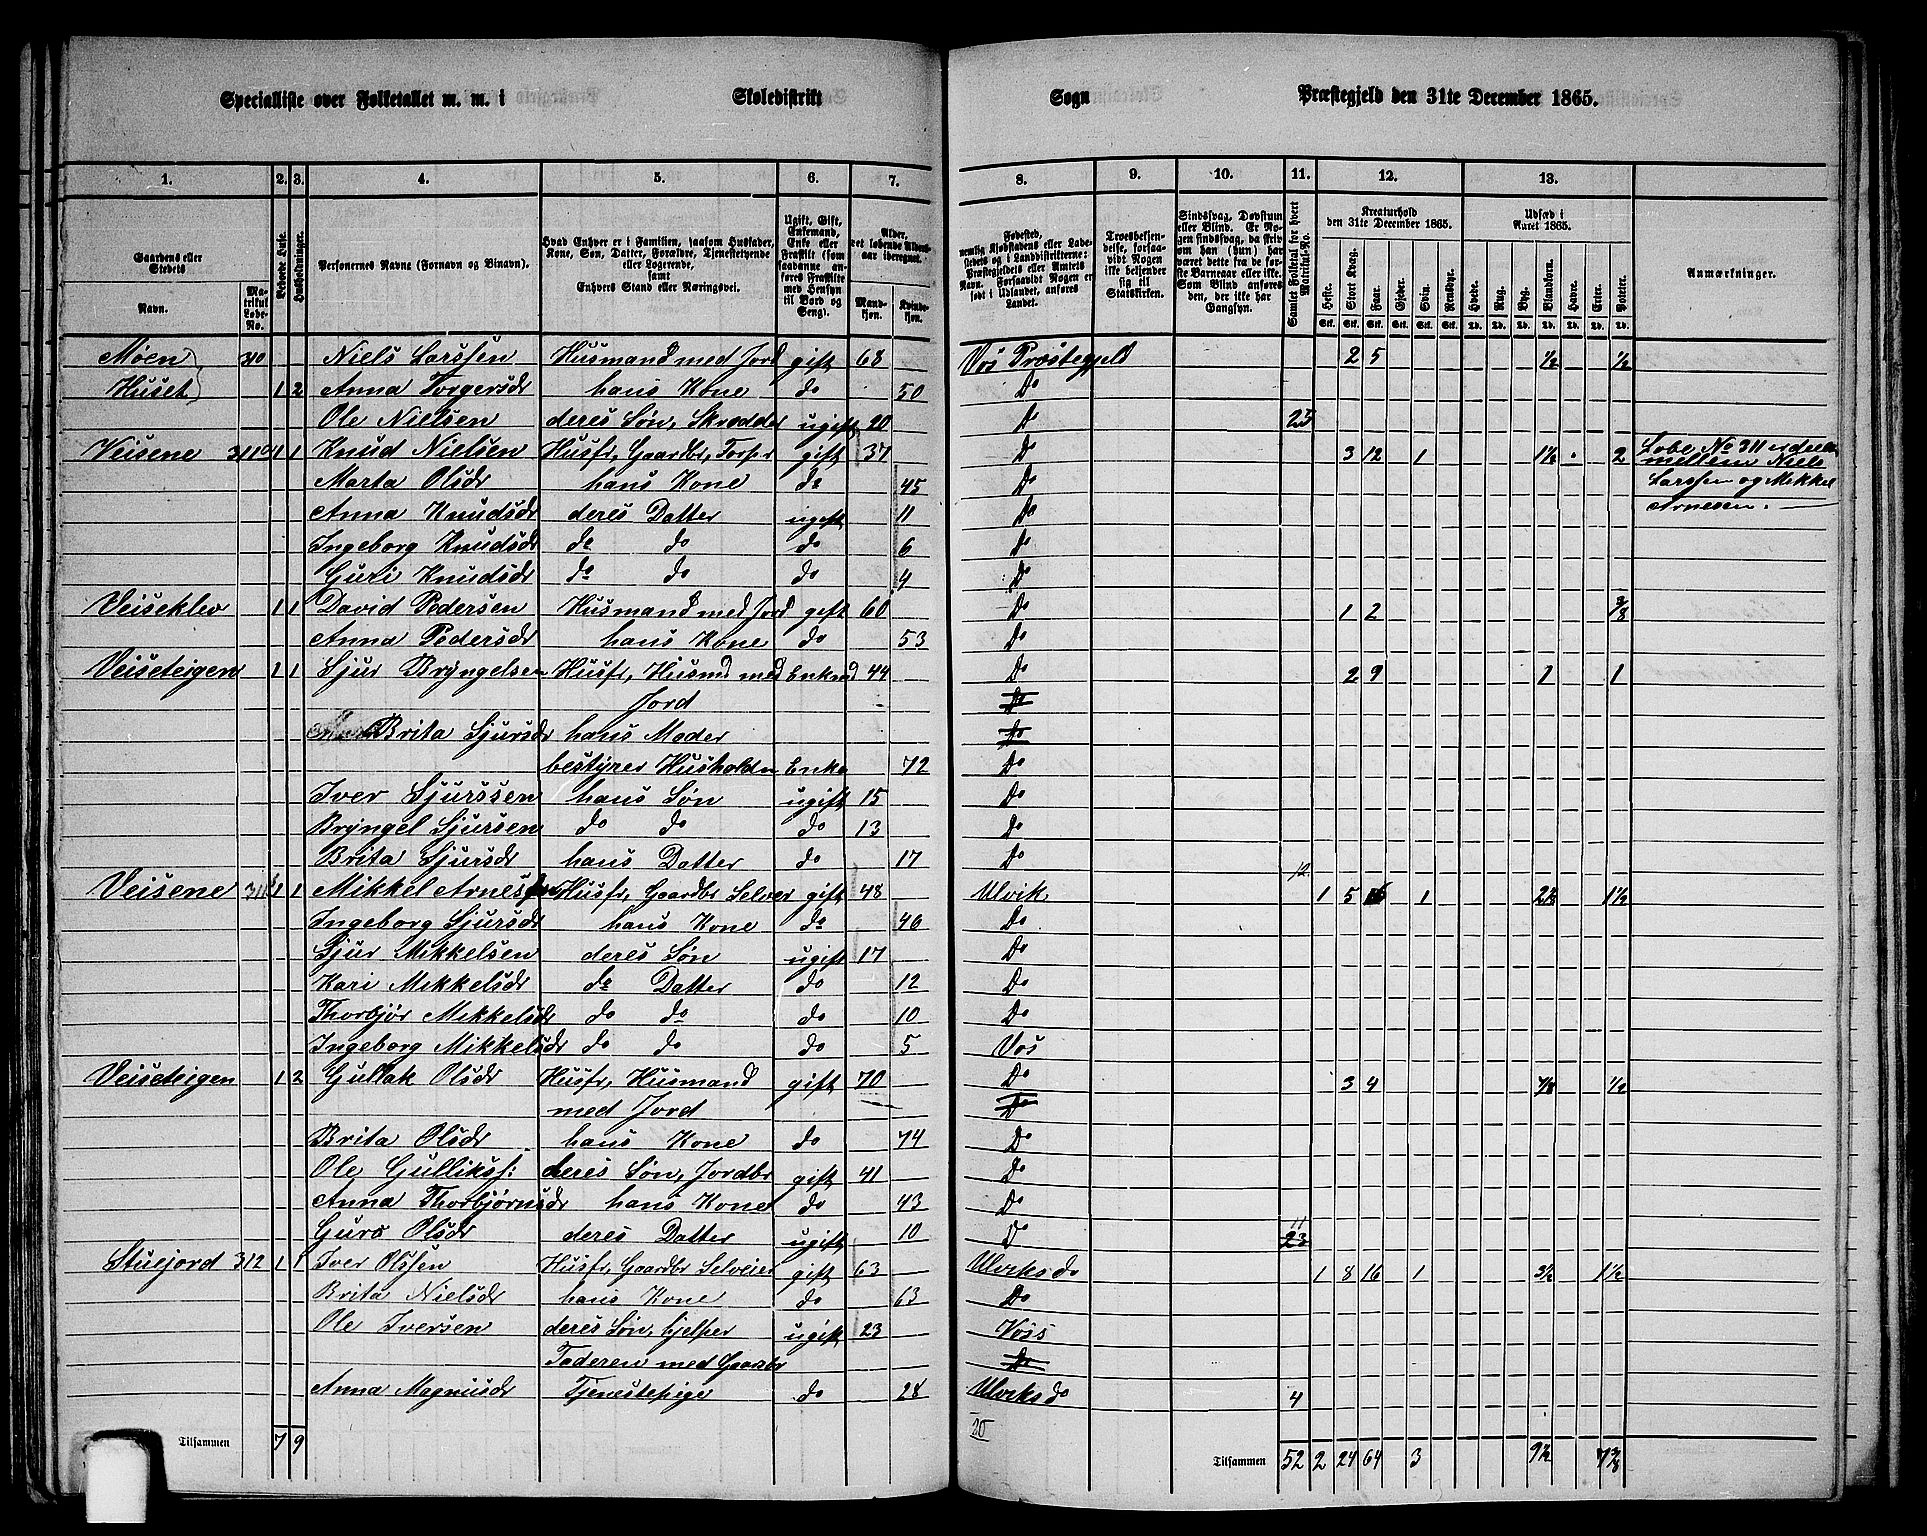 Specialliste over Folketallet m. m. i Skoledistrikt Sogn Præstegjeld den 31te December 1865.
1. 2. 3. 4. 5. 6. 7. 8. 9. 10. 11. 12. 13.
Gaardens eller Stedets
Navn.
Matrikul Løbe-No.
Beboede Huse.
Husholdninger.
Personernes Navne (Fornavn og Tilnavn).
Hvad Enhver er i Familien, saasom Husfader, Kone, Søn, Datter, Forældre, Tjenestetyende eller Logerende, samt
Enhvers Stand eller Næringsvei.
Ugift, Gift, Enkemand, Enke eller Fraskilt (som saadanne anføres Fraskilte med Hensyn til Bord og Seng).
Alder, det løbende Alders-aar iberegnet.
Mandkjøn. Kvindekjøn.
Fødested,
Troesbekjendelse, forsaavidt Nogen ikke bekjender sig til Statskirken.
Sindssvag, Døvstum eller Blind.
Samlet Folketal for hvert Matrikul-No.
Kreaturhold den 31te December 1865.
Heste. Stort Kvæg. Faar. Gjeder. Sviin. Rensdyr.
Udsæd i Aaret 1865.
Hvede. Rug. Byg. Blandkorn. Havre. Erter. Poteter.
Anmærkninger.
Møen 310 Niels Larssen Husmand med Jord gift 68 Vos Præstegjeld 2 5 1/2 1/2
Huset 1 2 Anna Torgersdr hans Kone do 50 Do
Ole Nielsen deres Søn, Skrædder ugift 20 Do
Veisene 311 1 1 Knud Nielsen Husfr, Gaardbr, gift 37 Do 3 12 1 1 1/2 2 Løbe No 311 er deelt
mellem Niels
Marta Olsdr hans Kone do 45 Do Larssen og Mikkel
Anna Knudsdr deres Datter ugift 11 Do Arnesen.
Ingeborg Knudsdr do do do 6 Do
Guri Knudsdr do do do 4 Do
Veiseklev 1 1 David Pedersen Husmand med Jord gift 60 Do 1 2 3/8
Anna Pedersdr hans Kone do 53 Do
Veiseteigen 1 1 Sjur Bryngelsen Husfr, Husmd med Enkmd 44 Do 2 9 1 1
Jord Do
Brita Sjursdr hans Moder Do
bestyrer Husholdn Enke 72 Do
Iver Sjurssen hans Søn ugift 15 Do
Bryngel Sjursen do do do 13 Do
Brita Sjursdr hans Datter do 17 Do 12
Veisene 311 1 1 Mikkel Arnessen Husfr, Gaardbr Selveier gift 48 Ulvik 1 5 16 1 2 1/2 1 1/2
Ingeborg Sjursdr hans Kone do 46 Do
Sjur Mikkelsen deres Søn ugift 17 Do
Kari Mikkelsdr do Datter do 12 Do
Thorbjør Mikkelsdr do do do 10 Do
Ingeborg Mikkelsdr do do do 5 Vos
Veiseteigen 1 2 Gullak Olsdr Husfr, Husmand gift 70 Do 3 4 7/8 1/2
med Jord Do
Brita Olsdr hans Kone do 74 Do
Ole Gulliks: deres Søn, Jordbr gift 41 Do
Anna Thorbjørnsdr hans Kone do 43 Do
Guro Olsdr deres Datter ugift 10 Do 11 23
Stuejord 312 1 1 Iver Olssen Husfr, Gaardbr Selveier gift 63 Ulviks do 1 8 16 1 3 1/2 1 1/2
Brita Nielsdr hans Kone do 63 Do
Ole Iversen deres Søn, hjelper ugift 23 Voss
Faderen med Gaardbr Do
Anna Magnusdr Tjenestepige do 28 Ulviks do 4
20
Tilsammen 7 9 Tilsammen 52 2 24 64 3 9 1/2 7 3/8